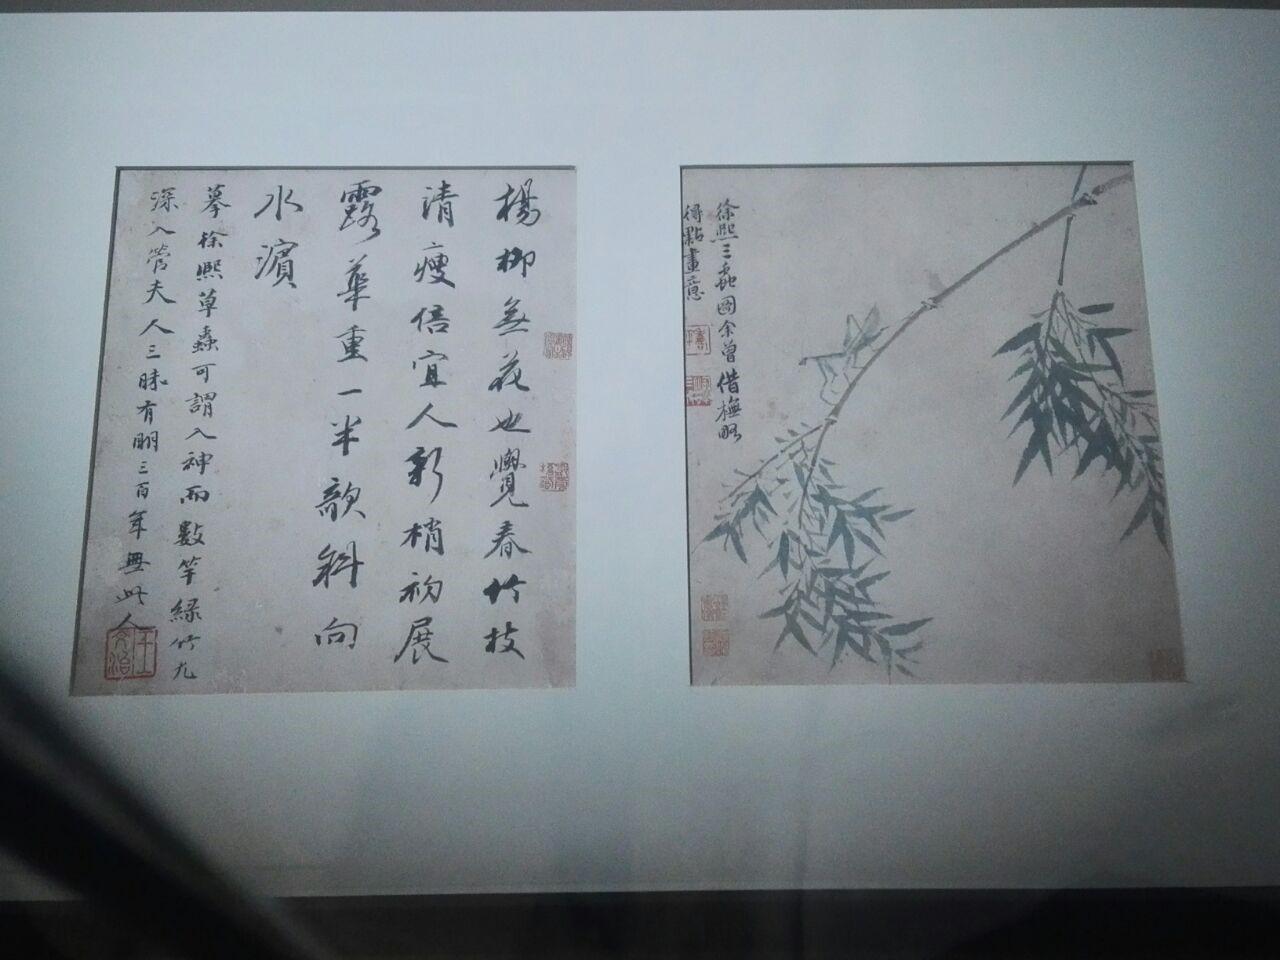 徐熙三蟲圖余曾借橅略
得點畫意
楊柳無花也覺春竹枝
清瘦倍宜人新梢初展
露華重一半欹斜向
水濱
摹徐熙草蟲可謂入神而數竿綠竹尤
深入管夫人三昧有明三百年無此人